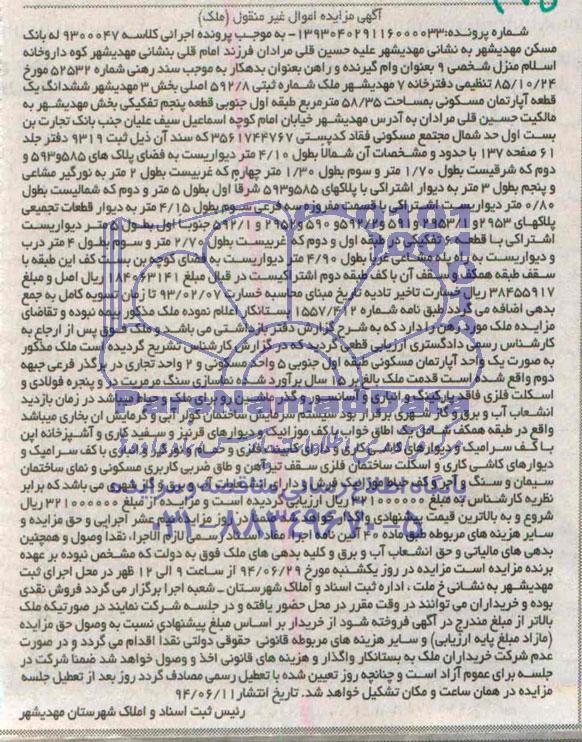 آگهی مزایده اموال غیر منقول (ملک)
شماره پرونده:۱۳۹۳۰۴۰۲۹۱۱۶۰۰۰۰۳۳- به موجب پرونده اجرائی کلاسه ۹۳۰۰۰۴۷ له بانک
مسکن مهدیشهر به نشانی مهدیشهر علیه حسین قلی مرادان فرزند امام قلی بنشانی مهدیشهر کوه داروخانه
اسلام منزل شخصی ۹ بعنوان وام گیرنده و راهن بعنوان بدهکار به موجب سند رهنی شماره ۵۲۵۳۲ مورخ
۸۵/۱۰/۲۴ تنظیمی دفترخانه ۷ مهدیشهر ملک شماره ثبتی ۵۹۲/۸ اصلی بخش ۳ مهدیشهر ششدانگ یک
قطعه آپارتمان مسکونی بمساحت ۵۸/۳۵ مترمربع طبقه اول جنوبی قطعه پنجم تفکیکی بخش مهدیشهر به
مالکیت حسین قلی مرادان به آدرس مهدیشهر خیابان امام کوچه اسماعیل سیف علیان جنب بانک تجارت بن
بست اول حد شمال مجتمع مسکونی فقاد کدپستی ۳۵۶۱۷۴۴۷۶۷ که سند آن ذیل ثبت ۹۱۶۹ دفتر جلد
۶۱ صفحه ۱۳۷ با حدود و مشخصات آن شمالاً بطول ۴/۱۰ متر دیواریست به فضای پلاک های ۵۸۵و۵۹۳ و
دوم که شرقیست بطول ۱/۷۰ متر و سوم بطول ۱/۳۰ متر چهارم که غربیست بطول ۲ متر به نورگیر مشاعی
و پنجم بطول ۳ متر به دیوار اشتراکی با پلاکهای ۵۸۵و۵۹۳ شرقا اول بطول ۵ متر و دوم که شمالیست بطول
۰/۸۰ متر دیواریست اشتراکی با قسمت مفروزه سه فرعی سوم بطول ۴/۱۵ متر به دیوار قطعات تجمیعی
پلاکهای ۲۹۵۳ و ۲۹۵۳/۱ و ۵۹۱ و ۵۹۲/۲ و ۵۹۰ و ۲۹۵۲ و ۵۹۲/۱ جنوباً اول بطول ۵ متر دیواریست
اشتراکی با قطعه تفکیکی در طبقه اول و دوم که غربیست بطول ۲/۷۰ متر و سوم بطول ۴ متر درب
و دیواریست به راه پله مشاعی غرباً بطول ۴/۹۰ متر دیواریست به فضای کوچه بن بست کف این طبقه با
سقف طبقه همکف و سقف آن با کف طبقه دوم اشتراکیست در قبال مبلغ ۱۸۴۰۶۳۱۴۱ ریال اصل و مبلغ
۳۸۴۵۵۹۱۷ ریال خسارت تاخیر تادیه تاریخ مبنای محاسبه خسارت ۹۳/۰۲/۰۷ تا زمان تسویه کامل به جمع
بدهی اضافه می گردد طبق نامه شماره ۱۵۵۷/۴۱۲ بستانکار اعلام نموده ملک مذکور بیمه نبوده و تقاضای
مزایده ملک مورد رهن را دارد که به شرح گزارش دفتر بازداشتی می باشد و ملک فوق پس از ارجاع به
کارشناس رسمی دادگستری ارزیابی قطعی گردید که در گزارش کارشناس تشریح گردیده است ملک مذکور
به صورت یک واحد آپارتمان مسکونی طبقه اول جنوبی ۵ واحد مسکونی و ۲ واحد تجاری در برگذر فرعی جبهه
دوم واقع شده است قدمت ملک بالغ بر ۱۵ سال برآورد شده نماسازی سنگ مرمریت درو پنجره فولادی و
اسکلت فلزی فاقد پارکینگ و انباری و آسانسور و گذر ماشین رو برای ملک و حیاط میباشد در زمان بازدید
انشعاب آب و برق و گاز شهری برقرار بود سیستم سرمایش ساختمان کولر آبی و گرمایش آن بخاری میباشد
واقع در طبقه همکف شامل یک اطاق خواب با کف موزائیک و دیوارهای قرنیز و سفید کاری و آشپزخانه اپن
با کف سرامیک و دیوارهای کاشی کاری و دارای کابینت فلزی و حمام و نورگیر و انباری با کف سرامیک و
دیوارهای کاشی کاری و اسکلت ساختمان فلزی سقف تیرآهن و طاق ضربی کاربری مسکونی و نمای ساختمان
سیمان و سنگ و راهرو کف حیاط موزائیک فرش دارای انشعابات آب و برق و گاز شهری می باشد که برابر
نظریه کارشناس به مبلغ ۳۲۱۰۰۰۰۰۰ ریال ارزیابی گردیده است و مزایده از مبلغ ۳۲۱۰۰۰۰۰۰ ریال
شروع و به بالاترین قیمت پیشنهادی واگذار خواهد شد ضمنا در روز مزایده نیم عشر اجرایی و حق مزایده و
سایر هزینه های مربوطه طبق ماده ۴۰ آئین نامه اجرا مفاد اسناد رسمی لازم الاجراء نقدا وصول و همچنین
بدهی های مالیاتی و حق انشعاب آب و برق و کلیه بدهی های ملک فوق به دولت که مشخص نبوده بر عهده
برنده مزایده است مزایده در روز یکشنبه مورخ ۹۴/۰۶/۲۹ از ساعت ۹ الی ۱۲ ظهر در محل اجرای ثبت
مهدیشهر به نشانی خ ملت ، اداره ثبت اسناد و املاک شهرستان ـ شعبه اجرا برگزار می گردد فروش نقدی
بوده و خریداران می توانند در وقت مقرر در محل حضور یافته و در جلسه شرکت نمایند در صورتیکه ملک
بالاتر از مبلغ مندرج در آگهی فروخته شود از خریدار بر اساس مبلغ پیشنهادی نسبت به وصول حق مزایده
(مازاد مبلغ پایه ارزیابی) و سایر هزینه های مربوطه قانونی حقوقی دولتی نقدا اقدام می گردد و در صورت
عدم شرکت خریداران ملک به بستانکار واگذار و هزینه های قانونی اخذ و وصول خواهد شد ضمنا شرکت در
جلسه برای عموم آزاد است و چنانچه روز تعیین شده با تعطیل رسمی مصادف گردد روز بعد از تعطیل جلسه
مزایده در همان ساعت و مکان تشکیل خواهد شد. تاریخ انتشار ۹۴/۰۶/۱۱
رئیس ثبت اسناد و املاک شهرستان مهدیشهر